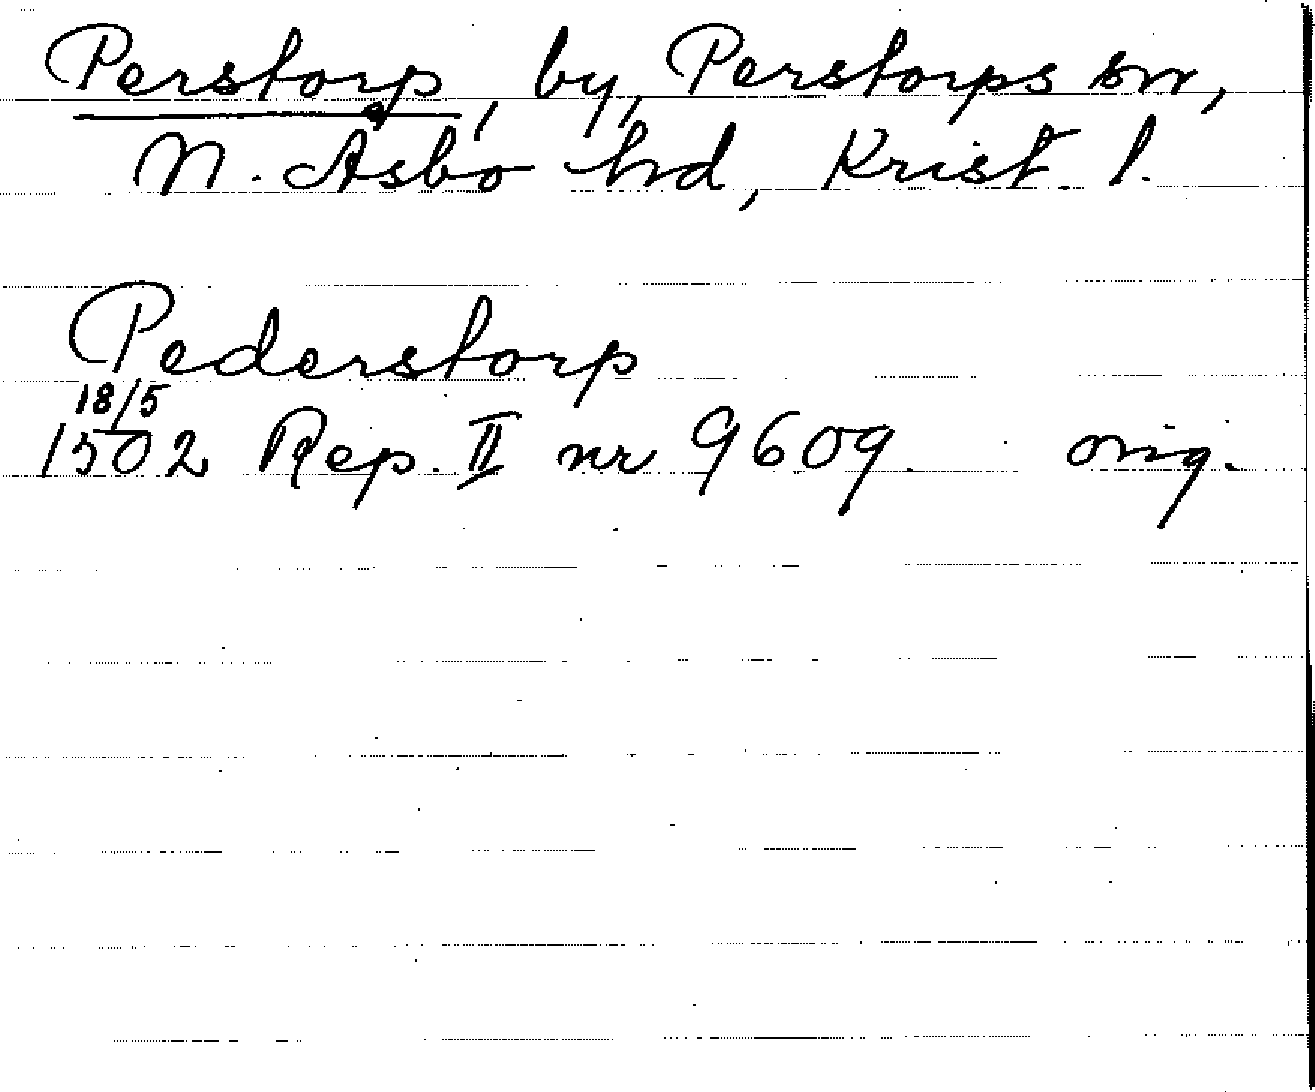 Perstorp, by, Perstorps sn,
N. Åsbo hd, Krist. l.
Pederstorp
18/5
1502 Rep. II nr 9609. orig.